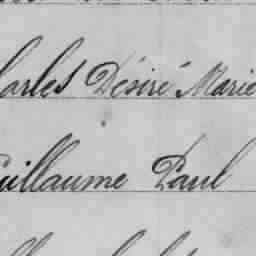 harles Désiré Marie
Guillaume Paul